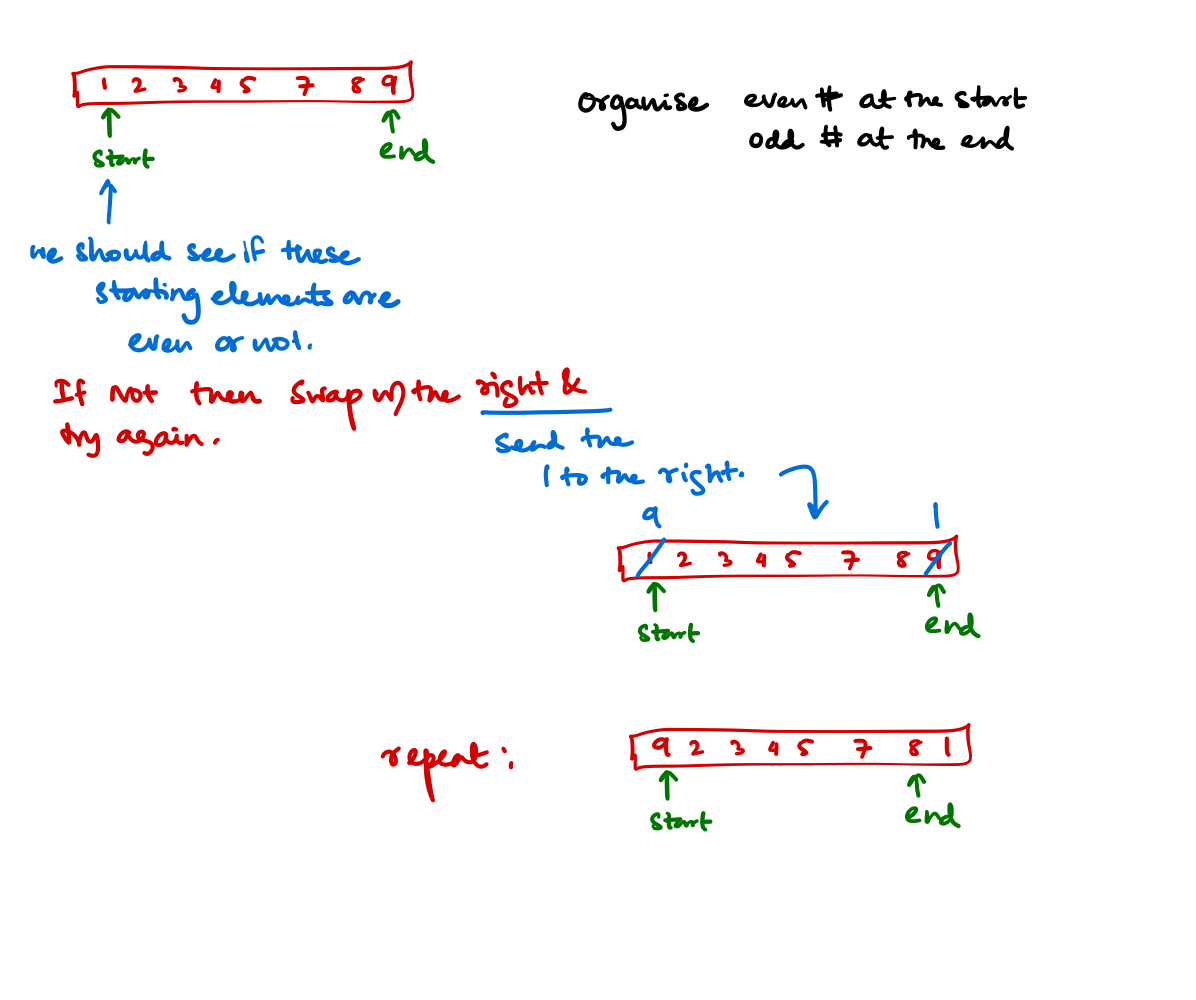 1 2 3 4 5 7 8 9
start end
organise even # at the start
odd # at the end
we should see if these
starting elements are
even or not.
If not then swap w/ the right &
try again.
send the
1 to the right.
9 1
1 2 3 4 5 7 8 9
start end
repeat:
9 2 3 4 5 7 8 1
start end